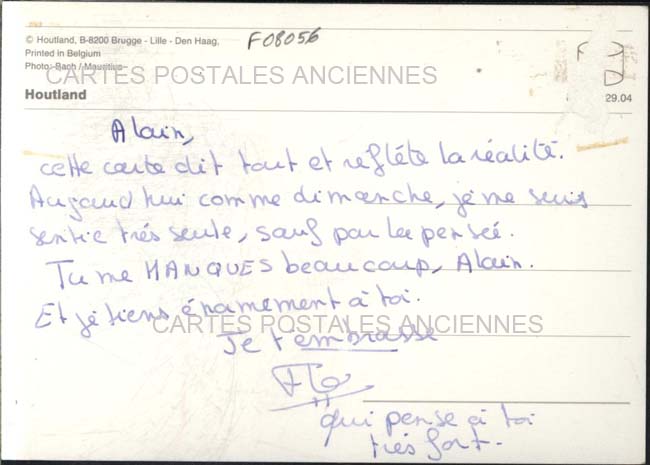 © Houtland, B-8200 Brugge - Lille - Den Haag,
Printed in Belgium
Photo: Bach / Mauritius
F08056
CARTES POSTALES ANCIENNES
Houtland
29.04
Alain,
cette carte dit tout et reflète la réalité.
Aujourd'hui comme dimanche, je me suis
sentie très seule, sauf par la pensée.
Tu me MANQUES beaucoup, Alain.
Et je tiens énormément à toi.
CARTES POSTALES ANCIENNES
Je t'embrasse
Flo
qui pense à toi
très fort.